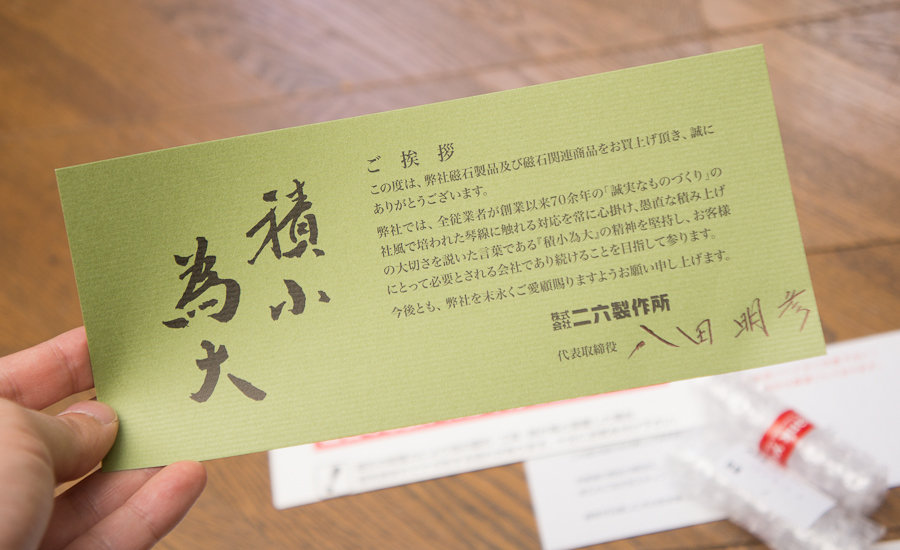 積小
為大
ご挨拶
この度は、弊社磁石製品及び磁石関連商品をお買上げ頂き、誠に
ありがとうございます。
弊社では、全従業者が創業以来70余年の「誠実なものづくり」の
社風で培われた琴線に触れる対応を常に心掛け、愚直な積み上げ
の大切さを説いた言葉である『積小為大』の精神を堅持し、お客様
にとって必要とされる会社であり続けることを目指して参ります。
今後とも、弊社を末永くご愛顧賜りますようお願い申し上げます。
株式会社 二六製作所
代表取締役 八田明彦